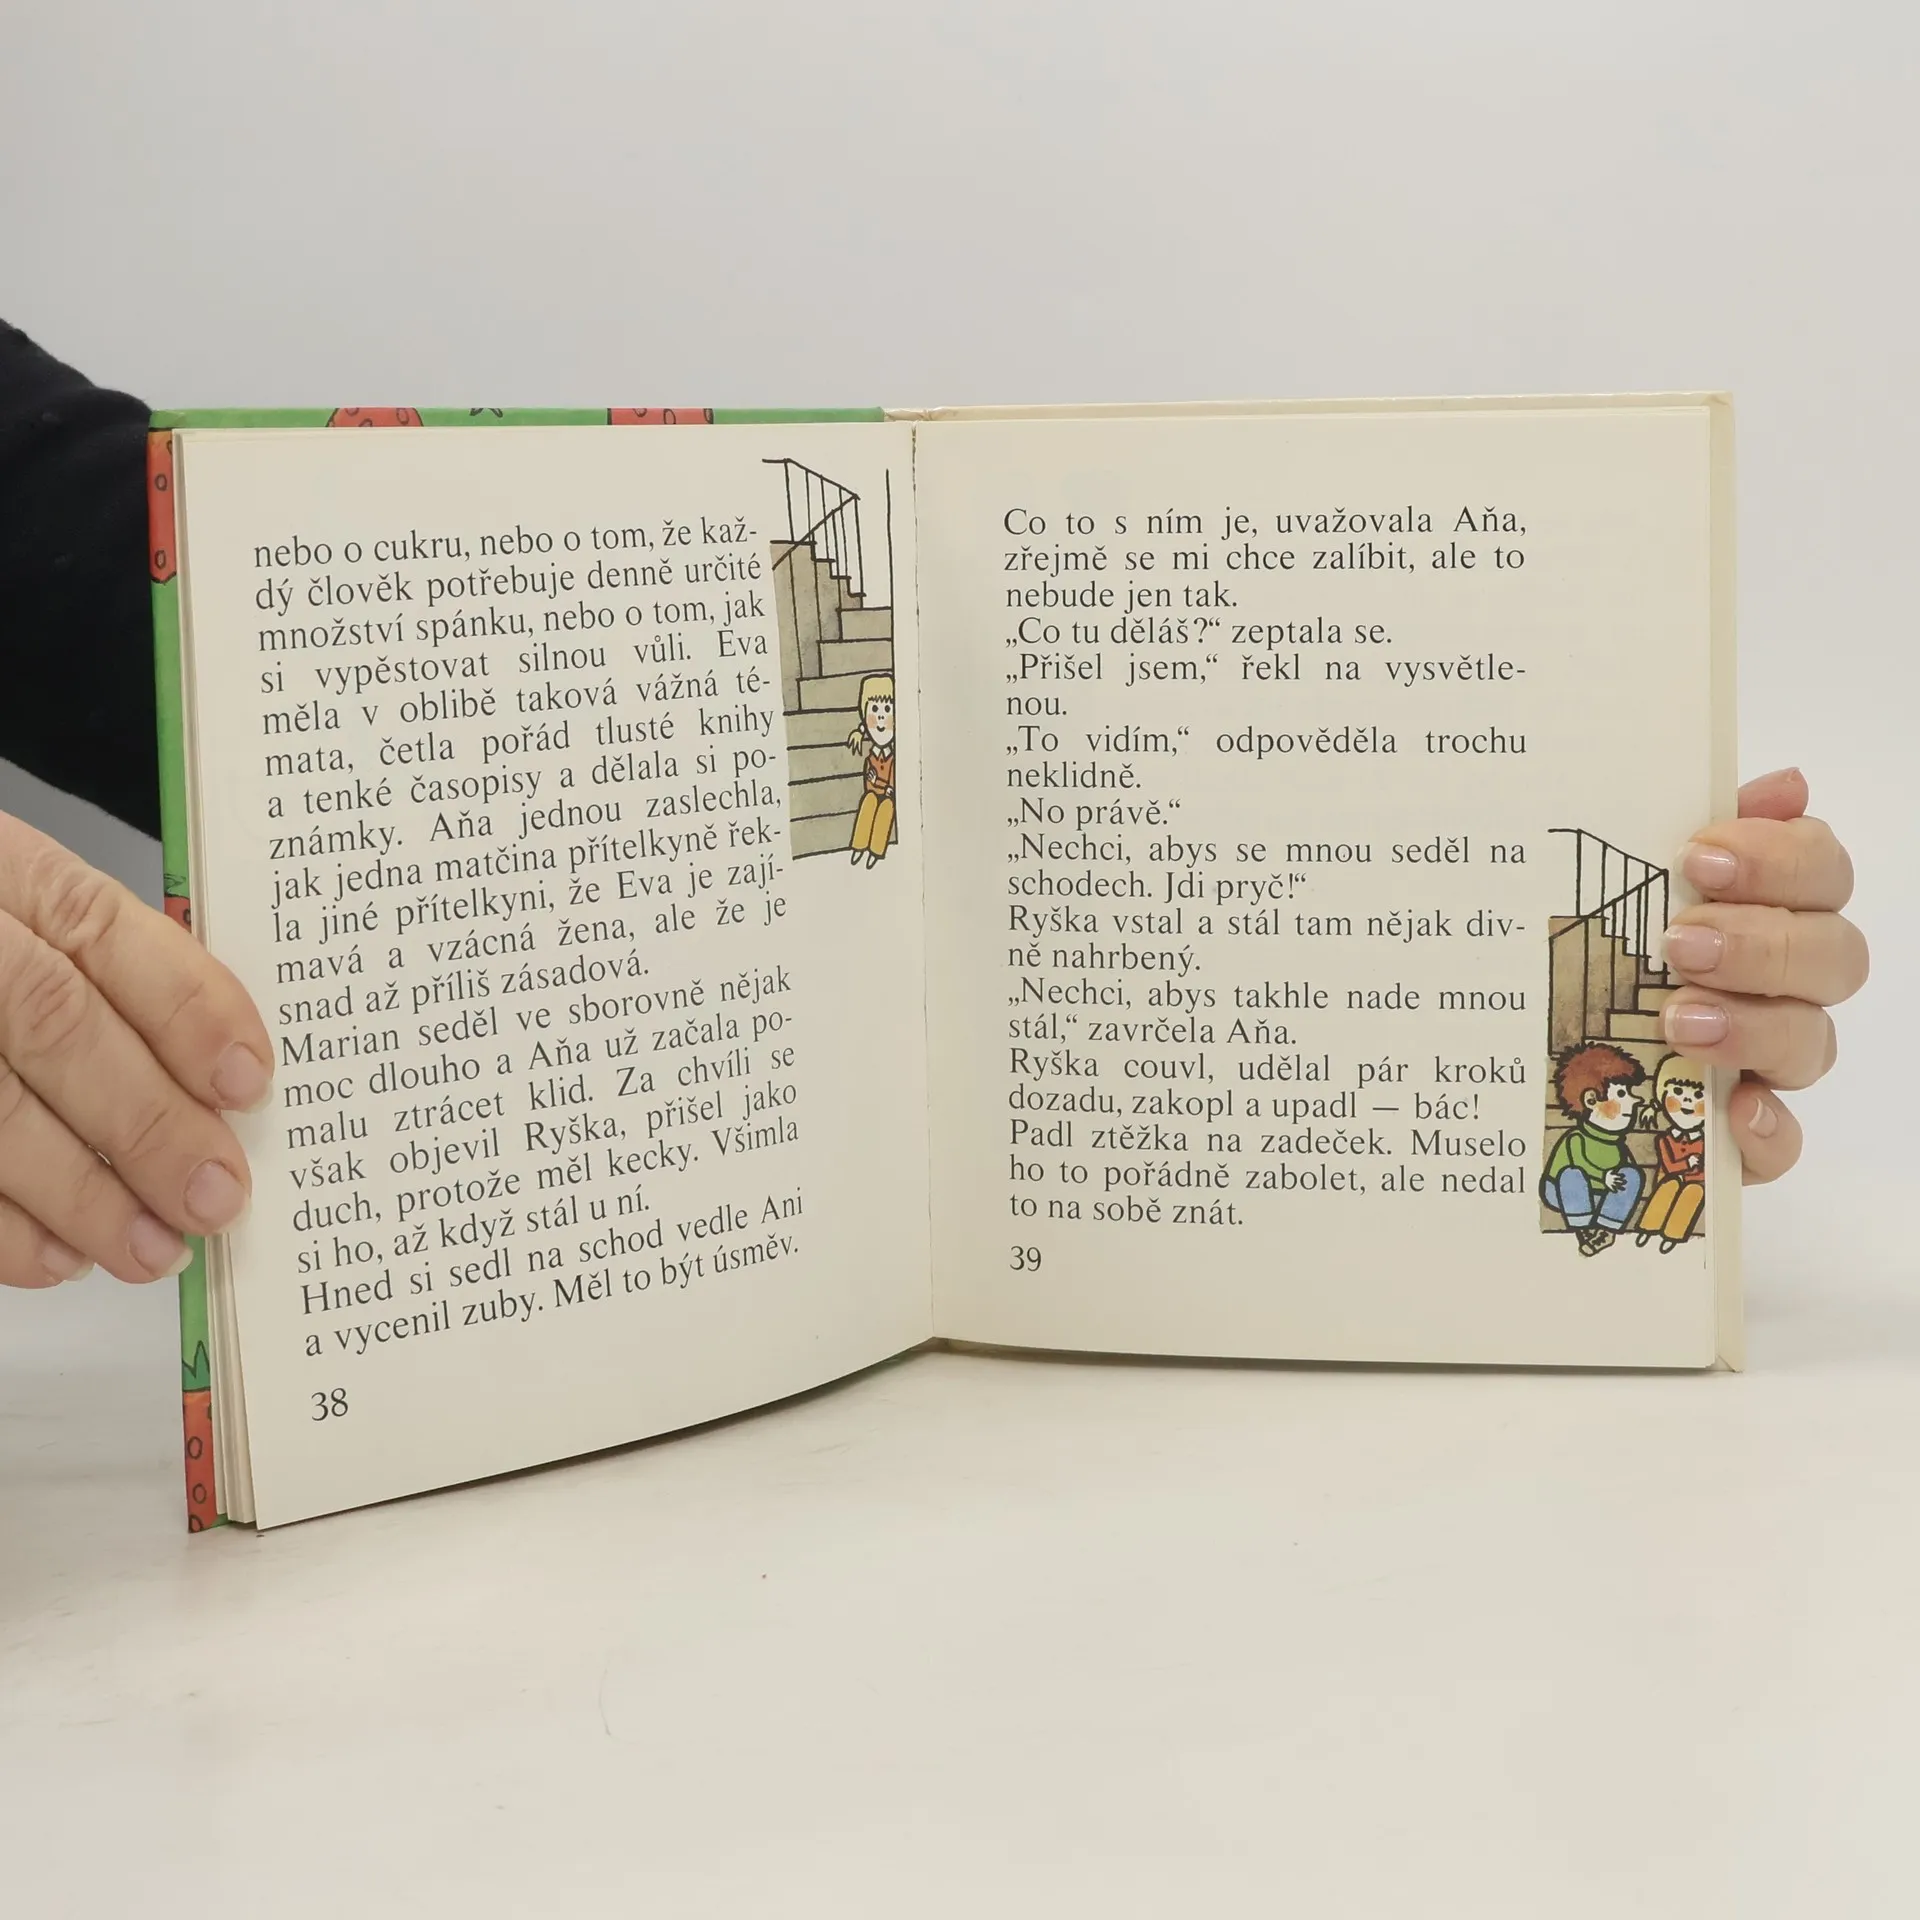 nebo o cukru, nebo o tom, že kaž-
dý člověk potřebuje denně určité
množství spánku, nebo o tom, jak
si vypěstovat silnou vůli. Eva
měla v oblibě taková vážná té-
mata, četla pořád tlusté knihy
a tenké časopisy a dělala si po-
známky. Aňa jednou zaslechla,
jak jedna matčina přítelkyně řek-
la jiné přítelkyni, že Eva je zají-
mavá a vzácná žena, ale že je
snad až příliš zásadová.
Marian seděl ve sborovně nějak
moc dlouho a Aňa už začala po-
malu ztrácet klid. Za chvíli se
však objevil Ryška, přišel jako
duch, protože měl kecky. Všimla
si ho, až když stál u ní.
Hned si sedl na schod vedle Ani
a vycenil zuby. Měl to být úsměv.
38
Co to s ním je, uvažovala Aňa,
zřejmě se mi chce zalíbit, ale to
nebude jen tak.
„Co tu děláš?“ zeptala se.
„Přišel jsem,“ řekl na vysvětle-
nou.
„To vidím,“ odpověděla trochu
neklidně.
„No právě.“
„Nechci, abys se mnou seděl na
schodech. Jdi pryč!“
Ryška vstal a stál tam nějak div-
ně nahrbený.
„Nechci, abys takhle nade mnou
stál,“ zavrčela Aňa.
Ryška couvl, udělal pár kroků
dozadu, zakopl a upadl — bác!
Padl ztěžka na zadeček. Muselo
ho to pořádně zabolet, ale nedal
to na sobě znát.
39